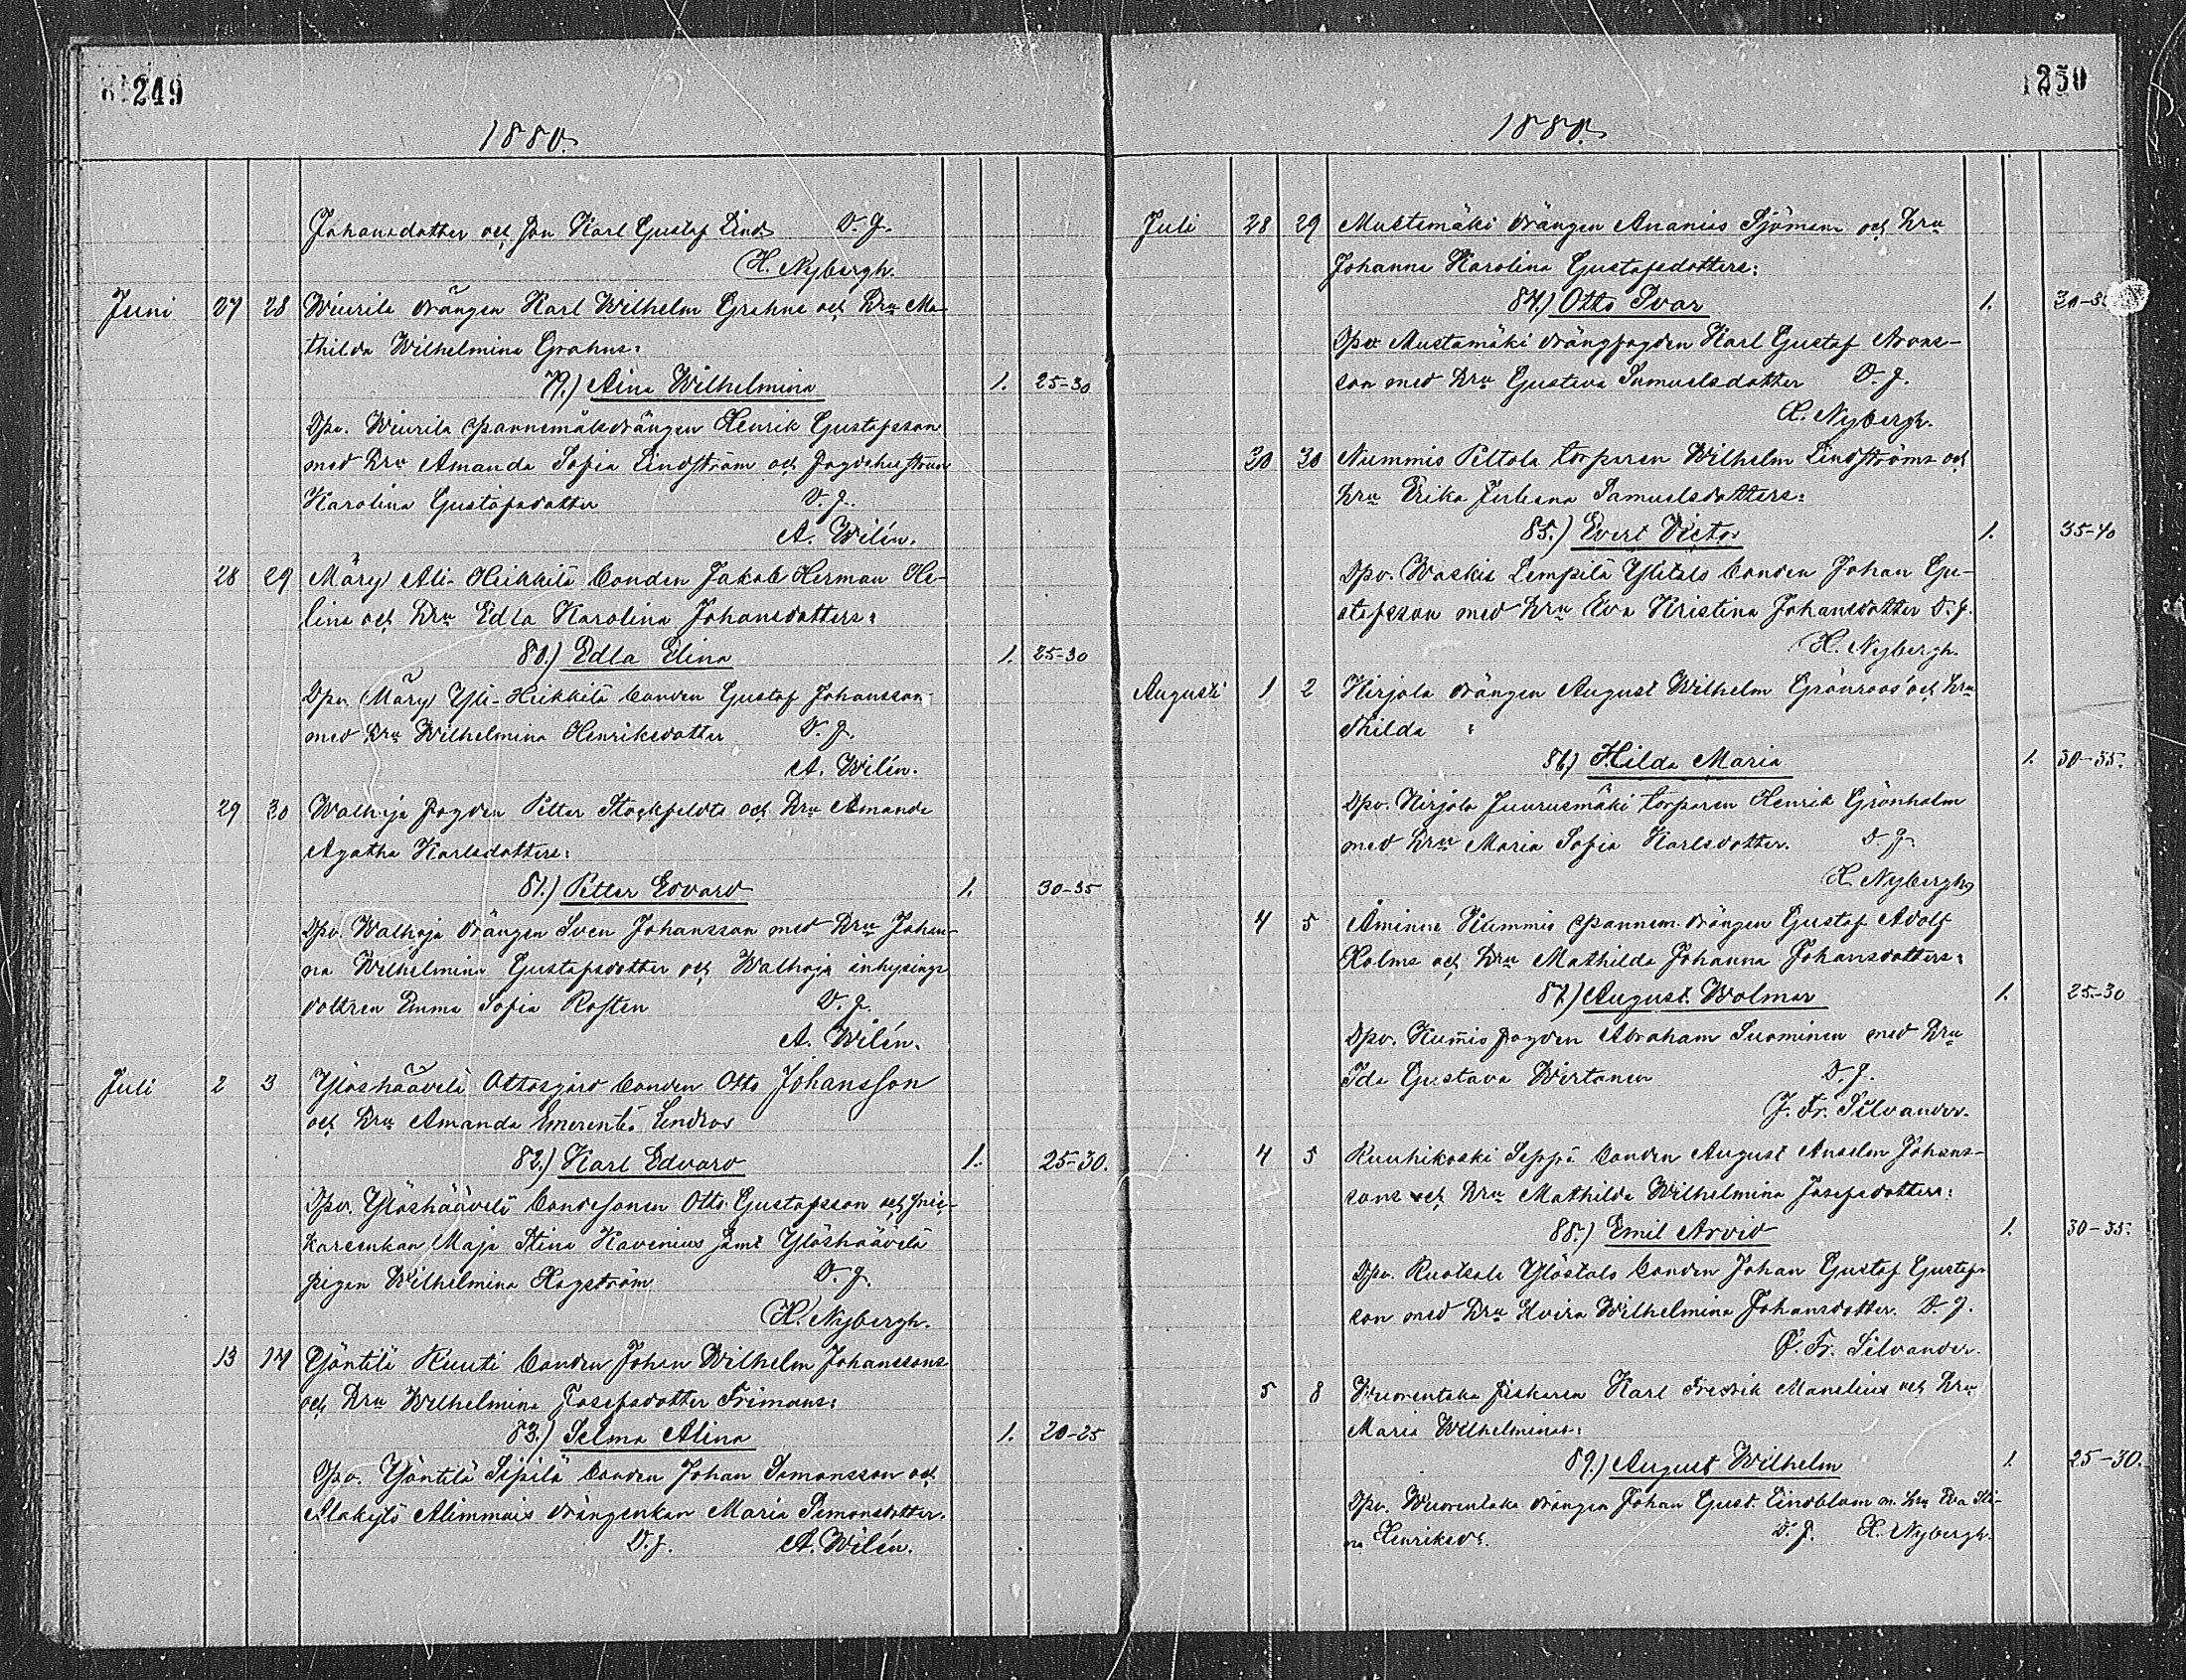 249
1880.
Johansdotter och Jon Karl Gustaf Lind D. J.
H. Nybergh.
Juni 27 28 Wiurila drängen Karl Wilhelm Grahns och Hru Ma-
thilda Wilhelmina Grahns:
79.) Aina Wilhelmina 1. 25-30
Dpv. Wiurila spannemålsdrängen Henrik Gustafsson
med Hru Amanda Sofia Lindström och fogdehustrun
Karolina Gustafsdotter D. J.
A. Wilén.
28 29 Märy Ali-Heikkilä bonden Jakob Herman He-
lins och Hru Edla Karolina Johansdotters:
80.) Edla Elina 1. 25-30
Dpv. Märy Yli-Heikkilä bonden Gustaf Johansson
med Hru Wilhelmina Henriksdotter D. J.
A. Wilén.
29 30 Walhoja fogden Petter Stockfeldts och Hru Amanda
Agatha Karlsdotters:
81.) Petter Edvard 1. 30-35
Dpv. Walhoja drängen Sven Johansson med Hru Johan-
na Wilhelmina Gustafsdotter och Walhoja inhysings
dottren Emma Sofia Rosten D. J.
A. Wilén.
Juli 2 3 Ylöshäävelä Ottosgård bonden Otto Johansson
och Hru Amanda Emerentia Lindros
82.) Karl Edvard 1. 25-30.
Dpv. Ylöshäävelä bondesonen Otto Gustafsson och
Maja Stina Kavenius samt Ylöshäävelä
pigan Wilhelmina Hagström D. J.
H. Nybergh.
13 14 Yöntilä Kuuti bonden Johan Wilhelm Johanssons
och Hru Wilhelmina Josefsdotter Frimans:
83.) Selma Alina 1. 20-25
Dpv. Yöntilä Sipilä bonden Johan Simonsson och
Alakylä Alimmais drängenkan Maria Simonsdotter.
D. J. A. Wilén.
250
1880.
Juli 28 29 Mustamäki drängen Ananias Sjömans och Hru
Johanna Karolina Gustafsdotters:
84.) Otto Ivar 1.
Dpv. Mustamäki drängfogden Karl Gustaf Arons-
son med Hru Gustava Samuelsdotter D. J.
H. Nybergh.
30 30 Nummis Peltola torparen Wilhelm Lindströms och
Hru Erika Juliana Samuelsdotters:
85.) Evert Victor 1. 35-40
Dpv. Waskis Lempilä Ylitalo bonden Johan Gu-
stafsson med Hru Eva Kristina Johansdotter D. J.
H. Nybergh.
Augusti 1 2 Kirjola drängen August Wilhelm Grönroos' och Hru
Thilda :
86.) Hilda Maria 1. 30-35.
Dpv. Kirjola Juurusmäki torparen Henrik Grönholm
med Hru Maria Sofia Karlsdotter. D. J.
H. Nybergh
4 5 Åminne Kummis spannem. drängen Gustaf Adolf
Holms och Hru Mathilda Johanna Johansdotters:
87.) August Wolmar 1. 25-30
Dpv. Kum̄is fogden Abraham Suominen med Hru
Ida Gustava Wirtanen D. J.
J. Fr. Silvander.
4 5 Ruuhikoski Seppä bonden August Anselm Johans-
sons och Hru Mathilda Wilhelmina Josefsdotters:
88.) Emil Arvid 1. 30-35.
Dpv. Ruotsala Ylöstalo bonden Johan Gustaf Gustafs-
son med Hru Lovisa Wilhelmina Johansdotter. D. J.
J. Fr. Silvander.
5 8 Wuorentaka fiskaren Karl Fredrik Manelius och Hru
Maria Wilhelminas:
89.) August Wilhelm 1. 25-30.
Dpv. Wuorentaka drängen Johan Gust. Lindblom m. Hru Eva Sti-
na Henriksdr. D. J. H. Nybergh.